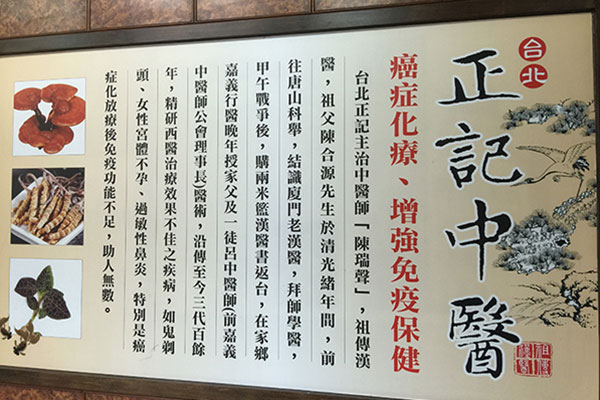 台北
正記中醫
癌症化療、增強免疫保健
台北正記主治中醫師「陳瑞聲」，祖傳漢
醫，祖父陳合源先生於清光緒年間，前
往唐山科舉，結識廈門老漢醫，拜師學醫，
甲午戰爭後，購兩米籃漢醫書返台，在家鄉
嘉義行醫晚年授家父及一徒呂中醫師(前嘉義
中醫師公會理事長)醫術，沿傳至今三代百餘
年，精研西醫治療效果不佳之疾病，如鬼剃
頭、女性宮體不孕、過敏性鼻炎，特別是癌
症化放療後免疫功能不足，助人無數。